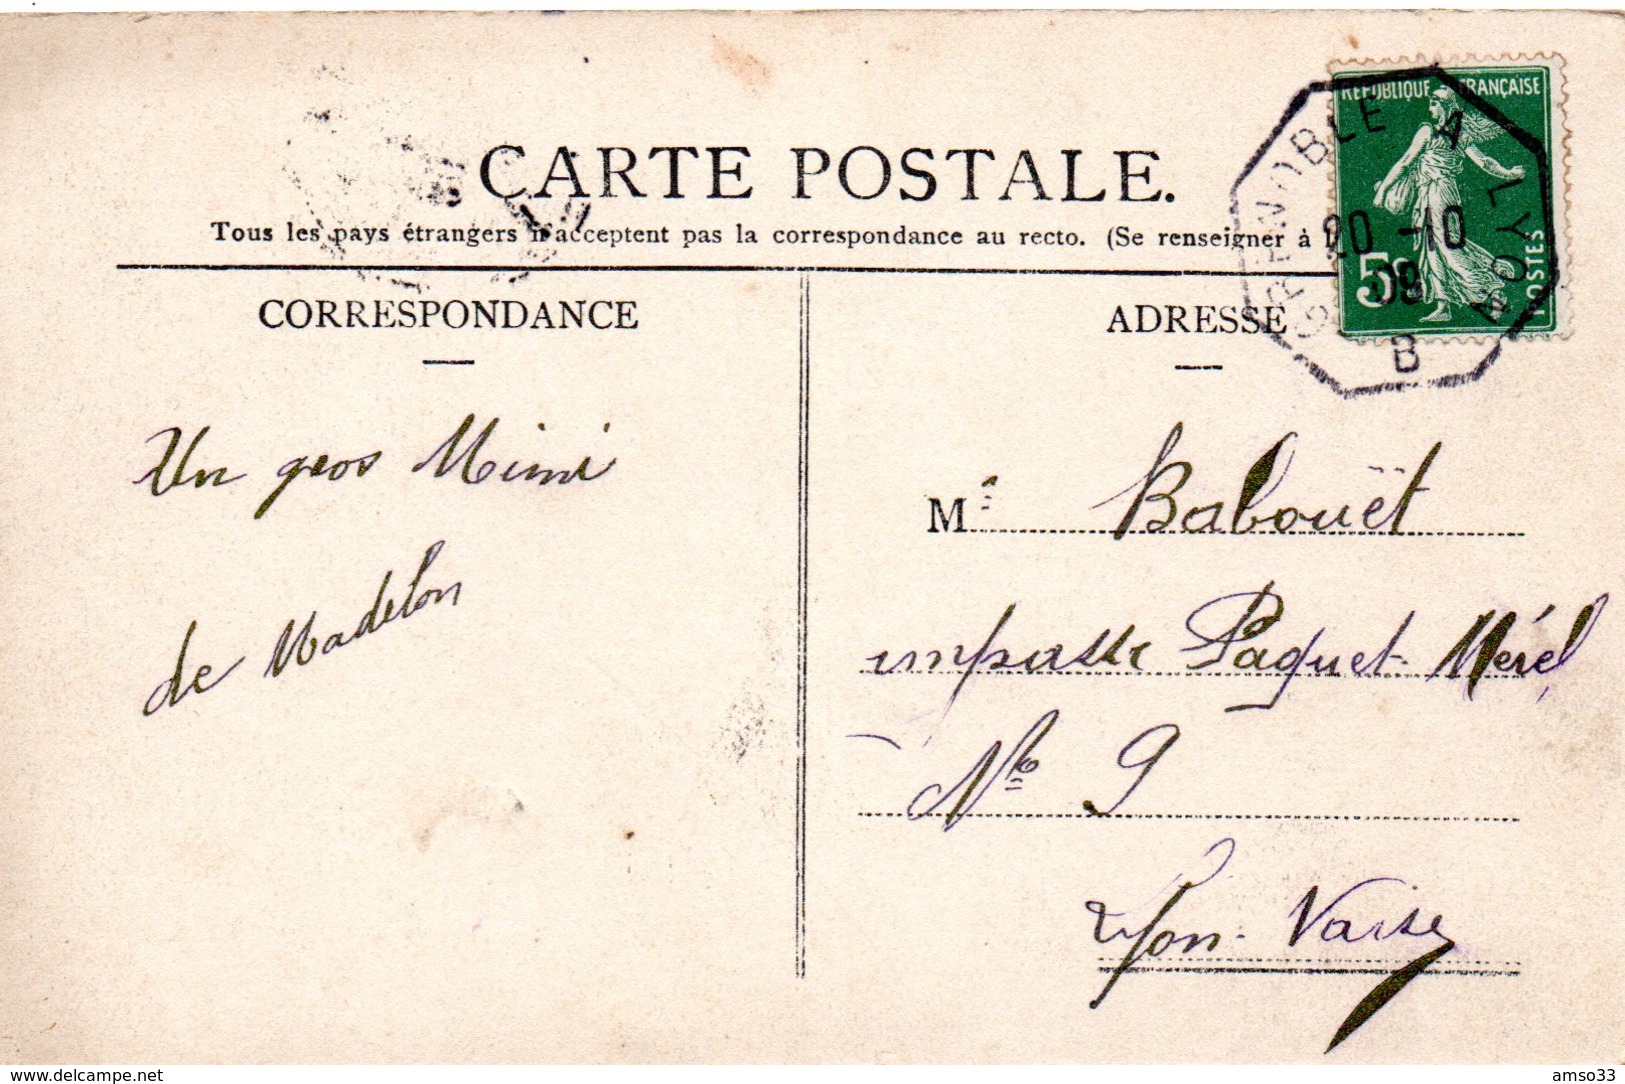 RÉPUBLIQUE FRANÇAISE
5c
POSTES
GRENOBLE A LYON
20 -10
09
B
CARTE POSTALE.
Tous les pays étrangers n'acceptent pas la correspondance au recto. (Se renseigner à l
CORRESPONDANCE
ADRESSE
Un gros Mimi
de Madelon
M Babouët
impasse Paquet Mérel
No 9
Lyon-Vaise
www.delcampe.net
amso33